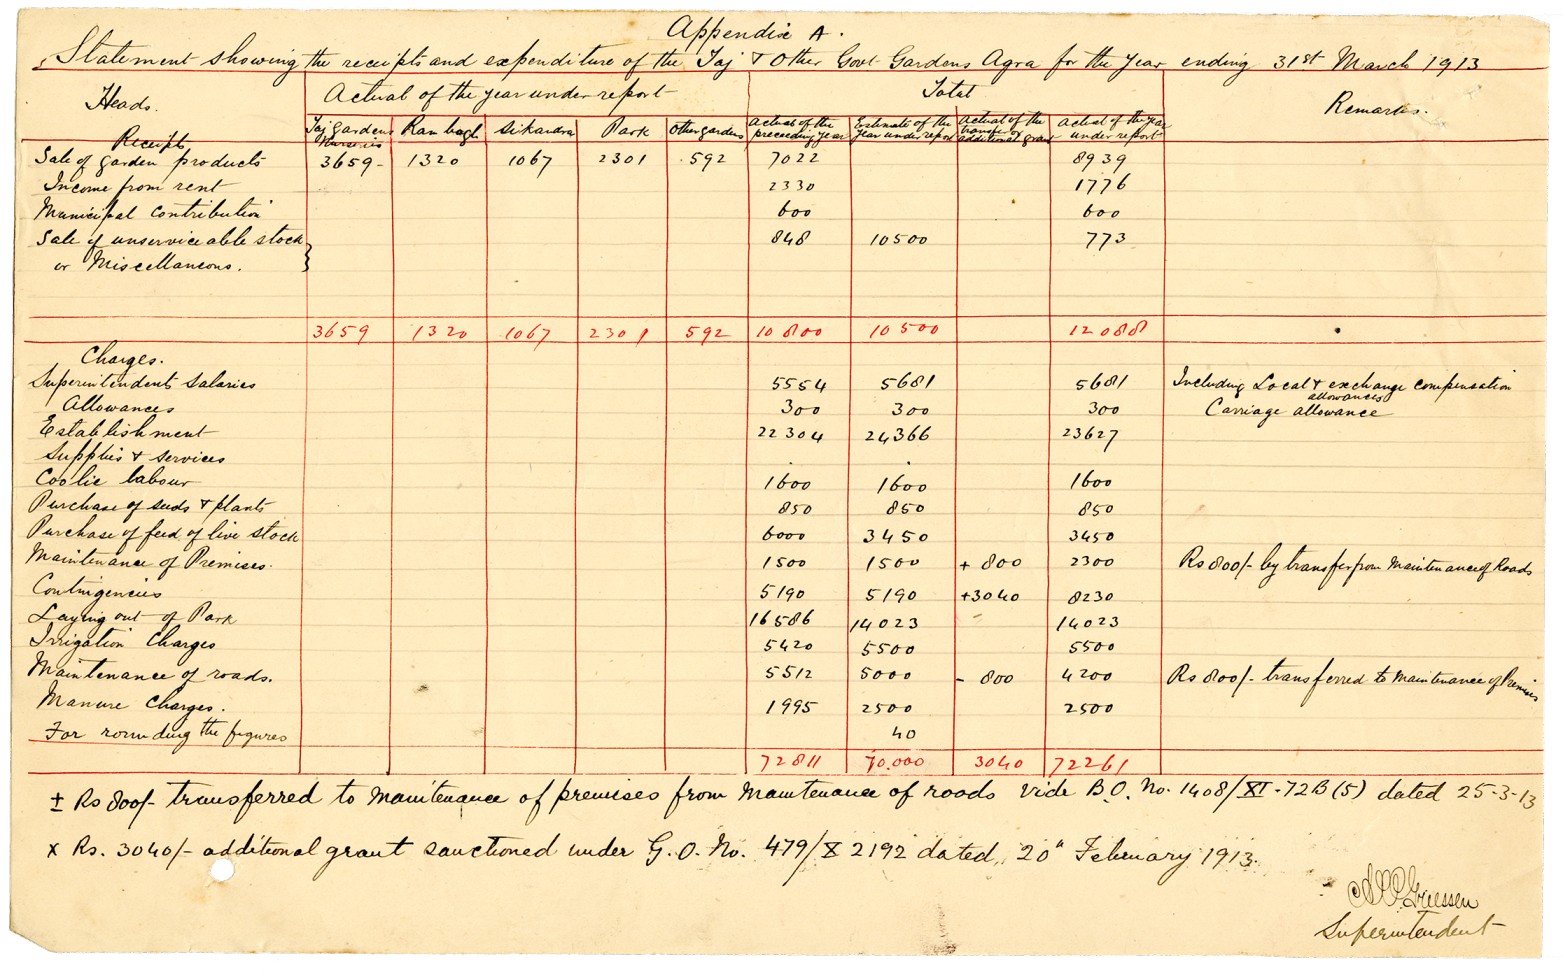 Appendix A.
Statement showing the receipts and expenditure of the Taj & Other Govt Gardens Agra for the year ending 31st March 1913
Heads. Actual of the year under report Total Remarks.
Receipts Taj Gardens Nurseries Ram bagh Sikandra Park Other gardens Actual of the preceeding year Estimate of the year under report Actual of the transfer or additional grant Actual of the year under report
Sale of garden products 3659 - 1320 1067 2301 592 7022 8939
Income from rent 2330 1776
Municipal Contribution 600 600
Sale of unserviceable stock 848 10500 773
or Miscellaneous.
3659 1320 1067 2301 592 10800 10500 12088
Charges.
Superintendents Salaries 5554 5681 5681 Including Local & exchange compensation allowances
Allowances 300 300 300 Carriage allowance
Establishment 22304 24366 23627
Supplies & services
Coolie labour 1600 1600 1600
Purchase of seeds & plants 850 850 850
Purchase of feed of live stock 6000 3450 3450
Maintenance of Premises. 1500 1500 + 800 2300 Rs 800/- by transfer from Maintenance of Roads
Contingencies 5190 5190 +3040 8230
Laying out of Park 16586 14023 14023
Irrigation Charges 5420 5500 5500
Maintenance of roads. 5512 5000 - 800 4200 Rs 800/- transferred to Maintenance of Premises
Manure Charges. 1995 2500 2500
For rounding the figures 40
72811 70,000 3040 72261
± Rs 800/- transferred to Maintenance of premises from Maintenance of roads vide B.O. No. 1408/XI-72B(5) dated 25-3-13
x Rs. 3040/- additional grant sanctioned under G.O. No. 479/X 2192 dated 20th February 1913.
Griessen
Superintendent